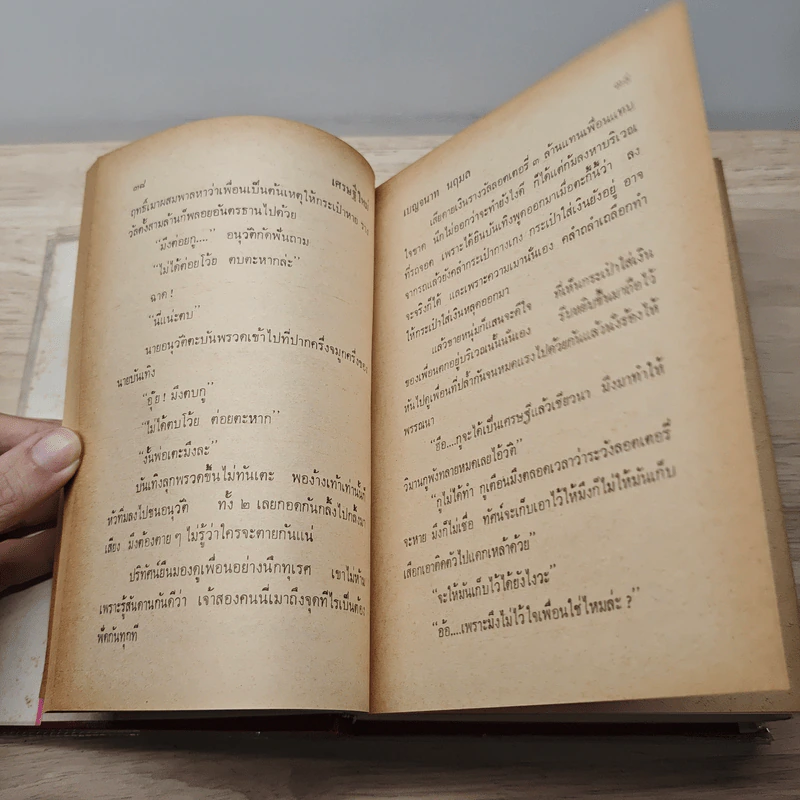 ๑๘ เศรษฐีใหม่
ฤทธิ์เมาผสมพาลหาว่าเพื่อนเป็นต้นเหตุให้กระเป๋าหาย ราง
วัลตั้งสามล้านก็พลอยอันตรธานไปด้วย
“มึงต่อยกู....” อนุวัติกัดฟันถาม
“ไม่ได้ต่อยโว้ย ตบตะหากล่ะ”
ฉาด !
“นี่แน่ะตบ”
นายอนุวัติตะบันพรวดเข้าไปที่ปากครึ่งจมูกครึ่งของ
นายบันเทิง
“อุ๊ย ! มึงตบกู”
“ไม่ได้ตบโว้ย ต่อยตะหาก”
“งั้นพ่อเตะมึงละ”
บันเทิงลุกพรวดขึ้น ไม่ทันเตะ พอง้างเท้าเท่านั้นก็
หัวทิ่มลงไปชนอนุวัติ ทั้ง ๒ เลยกอดกันกลิ้งไปกลิ้งมา
เสียง มึงต้องตาย ๆ ไม่รู้ว่าใครจะตายกันแน่
ปริทัศน์ยืนมองดูเพื่อนอย่างนึกทุเรศ เขาไม่ห้าม
เพราะรู้สันดานกันดีว่า เจ้าสองคนนี่เมาถึงจุดทีไรเป็นต้อง
ฟัดกันทุกที
๑๙
เบญจมาท นฤมล
เสียดายเงินรางวัลลอตเตอรี่ ๓ ล้านแทนเพื่อนแทบ
ใจขาด นึกไม่ออกว่าจะทำยังไงดี ก็ได้แต่ก้มลงหาบริเวณ
ที่รถจอด เพราะได้ยินบันเทิงพูดออกมาเมื่อตะกี้นี้ว่า ลง
จากรถแล้วยังคลำกระเป๋ากางเกง กระเป๋าใส่เงินยังอยู่ อาจ
จะจริงก็ได้ และเพราะความเมานั่นเอง คลำถลำเถลือกทำ
ให้กระเป๋าใส่เงินหลุดออกมา
แล้วชายหนุ่มก็แสนจะดีใจ ที่เห็นกระเป๋าใส่เงิน
ของเพื่อนตกอยู่บริเวณนั้นนั่นเอง รีบหยิบขึ้นมาถือไว้
หันไปดูเพื่อนที่ปล้ำกันจนหมดแรงไปด้วยกันแล้วนั่งร้องไห้
พรรณนา
“ฮือ....กูจะได้เป็นเศรษฐีแล้วเชียวนา มึงมาทำให้
วิมานกูพังทลายหมดเลยไอ้วัติ”
“กูไม่ได้ทำ กูเตือนมึงตลอดเวลาว่าระวังลอตเตอรี่
จะหาย มึงก็ไม่เชื่อ ทัศน์จะเก็บเอาไว้ให้มึงก็ไม่ให้มันเก็บ
เสือกเอาติดตัวไปแดกเหล้าด้วย”
“จะให้มันเก็บไว้ได้ยังไงวะ”
“อ้อ....เพราะมึงไม่ไว้ใจเพื่อนใช่ไหมล่ะ ?”